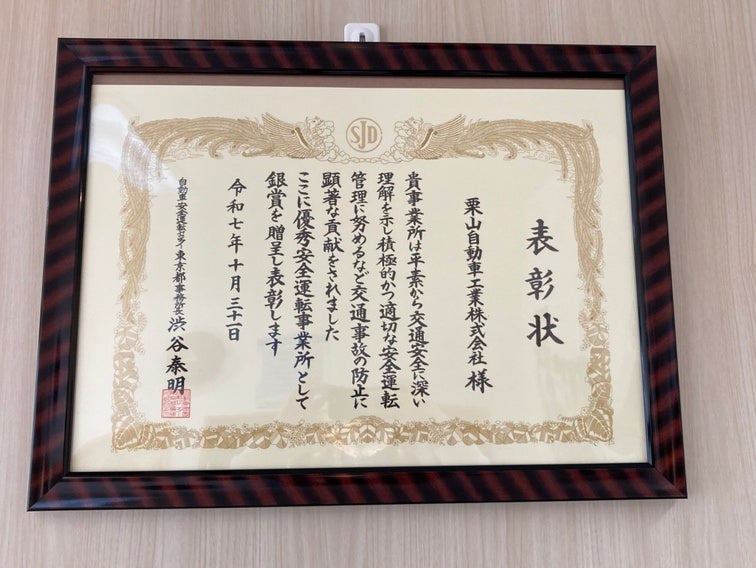 SJD
表彰状
栗山自動車工業株式会社 様
貴事業所は平素から交通安全に深い
理解を示し積極的かつ適切な安全運転
管理に努めるなど交通事故の防止に
顕著な貢献をされました
ここに優秀安全運転事業所として
銀賞を贈呈し表彰します
令和七年十月三十一日
自動車安全運転センター東京都事務所長 渋谷泰明